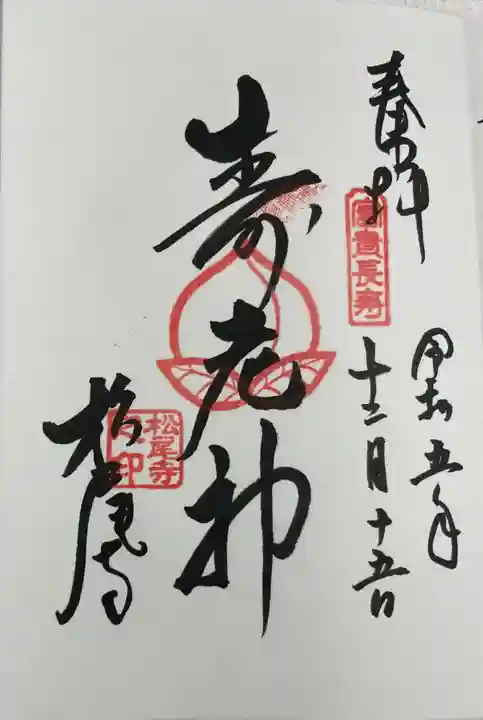 奉拝
富貴長寿
令和五年
十二月十五日
寿老神
松尾寺
松尾寺
之印